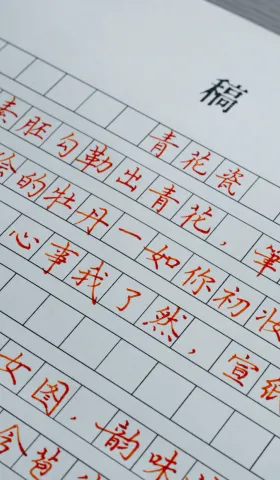 稿
青花瓷
素胚勾勒出青花，筆
绘的牡丹一如你初妆
心事我了然，宣纸
女图，韵味
含苞